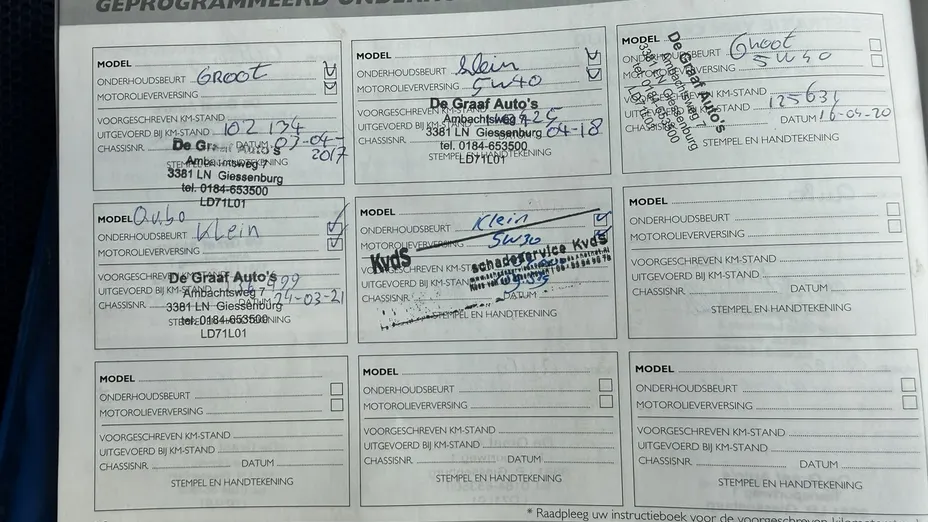 GEPROGRAMMEERD
MODEL
ONDERHOUDSBEURT GROOT
MOTOROLIEVERVERSING
VOORGESCHREVEN KM-STAND
UITGEVOERD BIJ KM-STAND 102 134
CHASSISNR. DATUM 03-04-2017
STEMPEL EN HANDTEKENING
De Graaf Auto's
Ambachtsweg 7
3381 LN Giessenburg
tel. 0184-653500
LD71L01
MODEL
ONDERHOUDSBEURT klein
MOTOROLIEVERVERSING 5W40
VOORGESCHREVEN KM-STAND
UITGEVOERD BIJ KM-STAND
CHASSISNR. DATUM 04-18
STEMPEL EN HANDTEKENING
De Graaf Auto's
Ambachtsweg 7
3381 LN Giessenburg
tel. 0184-653500
LD71L01
MODEL
ONDERHOUDSBEURT Groot
MOTOROLIEVERVERSING 5W40
VOORGESCHREVEN KM-STAND
UITGEVOERD BIJ KM-STAND 125631
CHASSISNR. DATUM 16-04-20
STEMPEL EN HANDTEKENING
De Graaf Auto's
Ambachtsweg 7
3381 LN Giessenburg
tel. 0184-653500
LD71L01
MODEL Qubo
ONDERHOUDSBEURT Klein
MOTOROLIEVERVERSING
VOORGESCHREVEN KM-STAND
UITGEVOERD BIJ KM-STAND
CHASSISNR. DATUM 24-03-21
STEMPEL EN HANDTEKENING
De Graaf Auto's
Ambachtsweg 7
3381 LN Giessenburg
tel. 0184-653500
LD71L01
MODEL
ONDERHOUDSBEURT Klein
MOTOROLIEVERVERSING 5W30
VOORGESCHREVEN KM-STAND
UITGEVOERD BIJ KM-STAND
CHASSISNR. DATUM
STEMPEL EN HANDTEKENING
KvdS
schadeservice KvdS
MODEL
ONDERHOUDSBEURT
MOTOROLIEVERVERSING
VOORGESCHREVEN KM-STAND
UITGEVOERD BIJ KM-STAND
CHASSISNR. DATUM
STEMPEL EN HANDTEKENING
MODEL
ONDERHOUDSBEURT
MOTOROLIEVERVERSING
VOORGESCHREVEN KM-STAND
UITGEVOERD BIJ KM-STAND
CHASSISNR. DATUM
STEMPEL EN HANDTEKENING
MODEL
ONDERHOUDSBEURT
MOTOROLIEVERVERSING
VOORGESCHREVEN KM-STAND
UITGEVOERD BIJ KM-STAND
CHASSISNR. DATUM
STEMPEL EN HANDTEKENING
MODEL
ONDERHOUDSBEURT
MOTOROLIEVERVERSING
VOORGESCHREVEN KM-STAND
UITGEVOERD BIJ KM-STAND
CHASSISNR. DATUM
STEMPEL EN HANDTEKENING
* Raadpleeg uw instructieboek voor de voorgeschreven